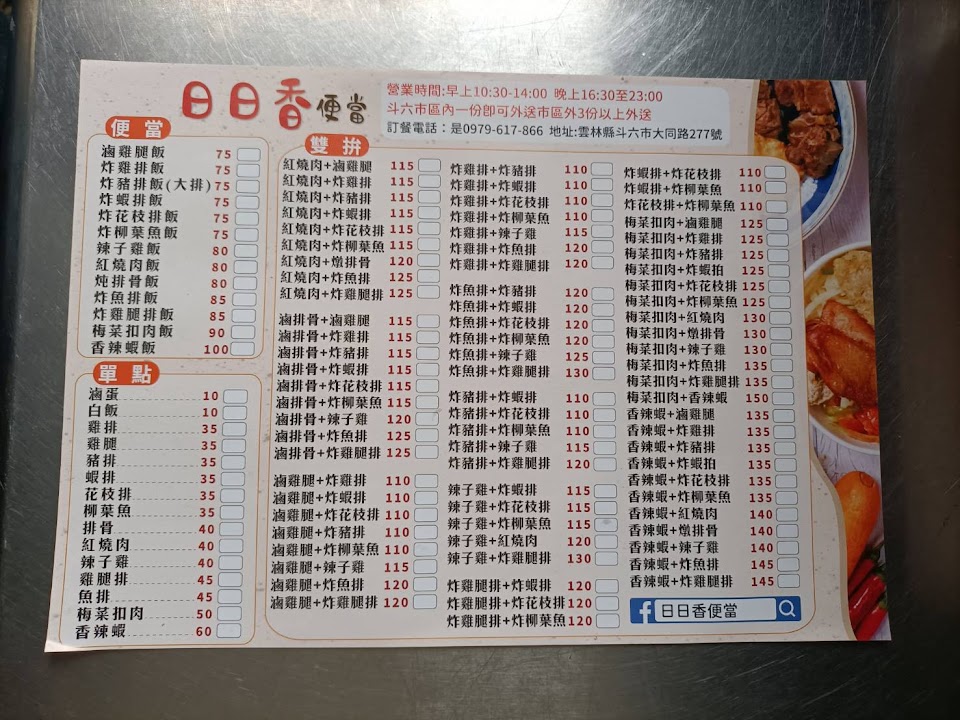 日日香便當
營業時間:早上10:30-14:00 晚上16:30至23:00
斗六市區內一份即可外送市區外3份以上外送
訂餐電話：是0979-617-866 地址:雲林縣斗六市大同路277號
便當
滷雞腿飯 75
炸雞排飯 75
炸豬排飯(大排) 75
炸蝦排飯 75
炸花枝排飯 75
炸柳葉魚飯 75
辣子雞飯 80
紅燒肉飯 80
炖排骨飯 80
炸魚排飯 85
炸雞腿排飯 85
梅菜扣肉飯 90
香辣蝦飯 100
單點
滷蛋 10
白飯 10
雞排 35
雞腿 35
豬排 35
蝦排 35
花枝排 35
柳葉魚 35
排骨 40
紅燒肉 40
辣子雞 40
雞腿排 45
魚排 45
梅菜扣肉 50
香辣蝦 60
雙拚
紅燒肉+滷雞腿 115
紅燒肉+炸雞排 115
紅燒肉+炸豬排 115
紅燒肉+炸蝦排 115
紅燒肉+炸花枝排 115
紅燒肉+炸柳葉魚 115
紅燒肉+燉排骨 120
紅燒肉+炸魚排 125
紅燒肉+炸雞腿排 125
滷排骨+滷雞腿 115
滷排骨+炸雞排 115
滷排骨+炸豬排 115
滷排骨+炸蝦排 115
滷排骨+炸花枝排 115
滷排骨+炸柳葉魚 115
滷排骨+辣子雞 120
滷排骨+炸魚排 125
滷排骨+炸雞腿排 125
滷雞腿+炸雞排 110
滷雞腿+炸蝦排 110
滷雞腿+炸花枝排 110
滷雞腿+炸豬排 110
滷雞腿+炸柳葉魚 110
滷雞腿+辣子雞 115
滷雞腿+炸魚排 120
滷雞腿+炸雞腿排 120
炸雞排+炸豬排 110
炸雞排+炸蝦排 110
炸雞排+炸花枝排 110
炸雞排+炸柳葉魚 110
炸雞排+辣子雞 115
炸雞排+炸魚排 120
炸雞排+炸雞腿排 120
炸魚排+炸豬排 120
炸魚排+炸蝦排 120
炸魚排+炸花枝排 120
炸魚排+炸柳葉魚 120
炸魚排+辣子雞 125
炸魚排+炸雞腿排 130
炸豬排+炸蝦排 110
炸豬排+炸花枝排 110
炸豬排+炸柳葉魚 110
炸豬排+辣子雞 115
炸豬排+炸雞腿排 120
辣子雞+炸蝦排 115
辣子雞+炸花枝排 115
辣子雞+炸柳葉魚 115
辣子雞+紅燒肉 120
辣子雞+炸雞腿排 130
炸雞腿排+炸蝦排 120
炸雞腿排+炸花枝排 120
炸雞腿排+炸柳葉魚 120
炸蝦排+炸花枝排 110
炸蝦排+炸柳葉魚 110
炸花枝排+炸柳葉魚 110
梅菜扣肉+滷雞腿 125
梅菜扣肉+炸雞排 125
梅菜扣肉+炸豬排 125
梅菜扣肉+炸蝦拍 125
梅菜扣肉+炸花枝排 125
梅菜扣肉+炸柳葉魚 125
梅菜扣肉+紅燒肉 130
梅菜扣肉+燉排骨 130
梅菜扣肉+辣子雞 130
梅菜扣肉+炸魚排 135
梅菜扣肉+炸雞腿排 135
梅菜扣肉+香辣蝦 150
香辣蝦+滷雞腿 135
香辣蝦+炸雞排 135
香辣蝦+炸豬排 135
香辣蝦+炸蝦拍 135
香辣蝦+炸花枝排 135
香辣蝦+炸柳葉魚 135
香辣蝦+紅燒肉 140
香辣蝦+燉排骨 140
香辣蝦+辣子雞 140
香辣蝦+炸魚排 145
香辣蝦+炸雞腿排 145
f 日日香便當